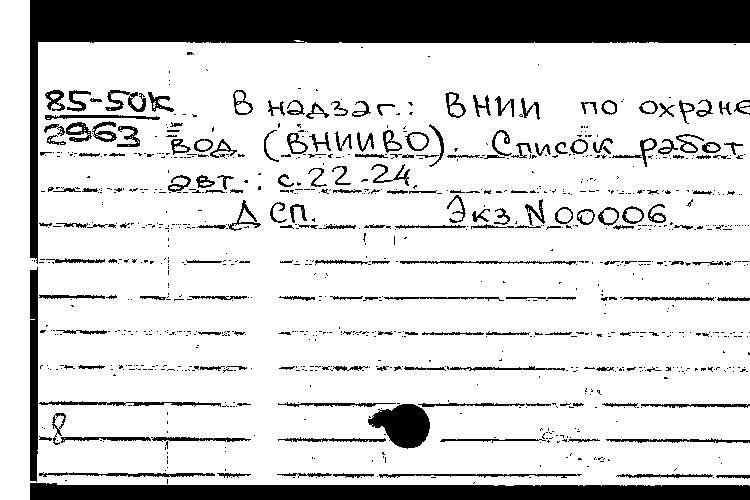 85-50к В надзаг.: ВНИИ по охране
2963 вод (ВНИИВО). Список работ
авт.: с.22-24.
ДСП. Экз. N 00006.
8